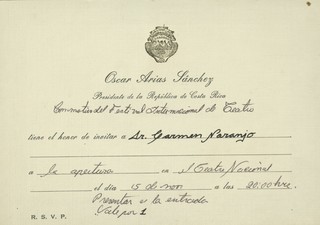 Oscar Arias Sánchez
Presidente de la República de Costa Rica
Con motivo del Festival Internacional de Teatro
tiene el honor de invitar a Sr. Carmen Naranjo
a la apertura en el Teatro Nacional
el día 15 de nov a las 20:00 hrs.
Presentar es la entrada
R. S. V. P. Vale por 1